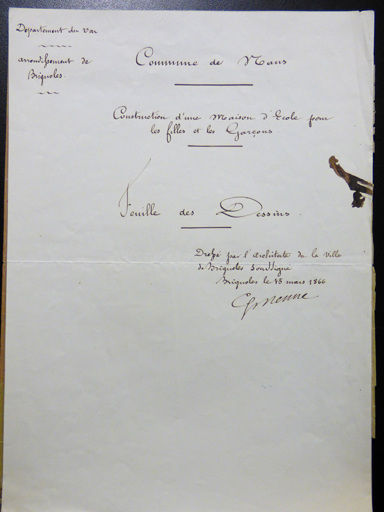 Departement du Var
arrondissement de
Brignoles.
Commune de Nans
Construction d'une Maison d'Ecole pour
les filles et les Garçons
Feuille des Dessins.
Dressé par l'Architecte de la Ville
de Brignoles Soussigné
Brignoles le 15 mars 1866